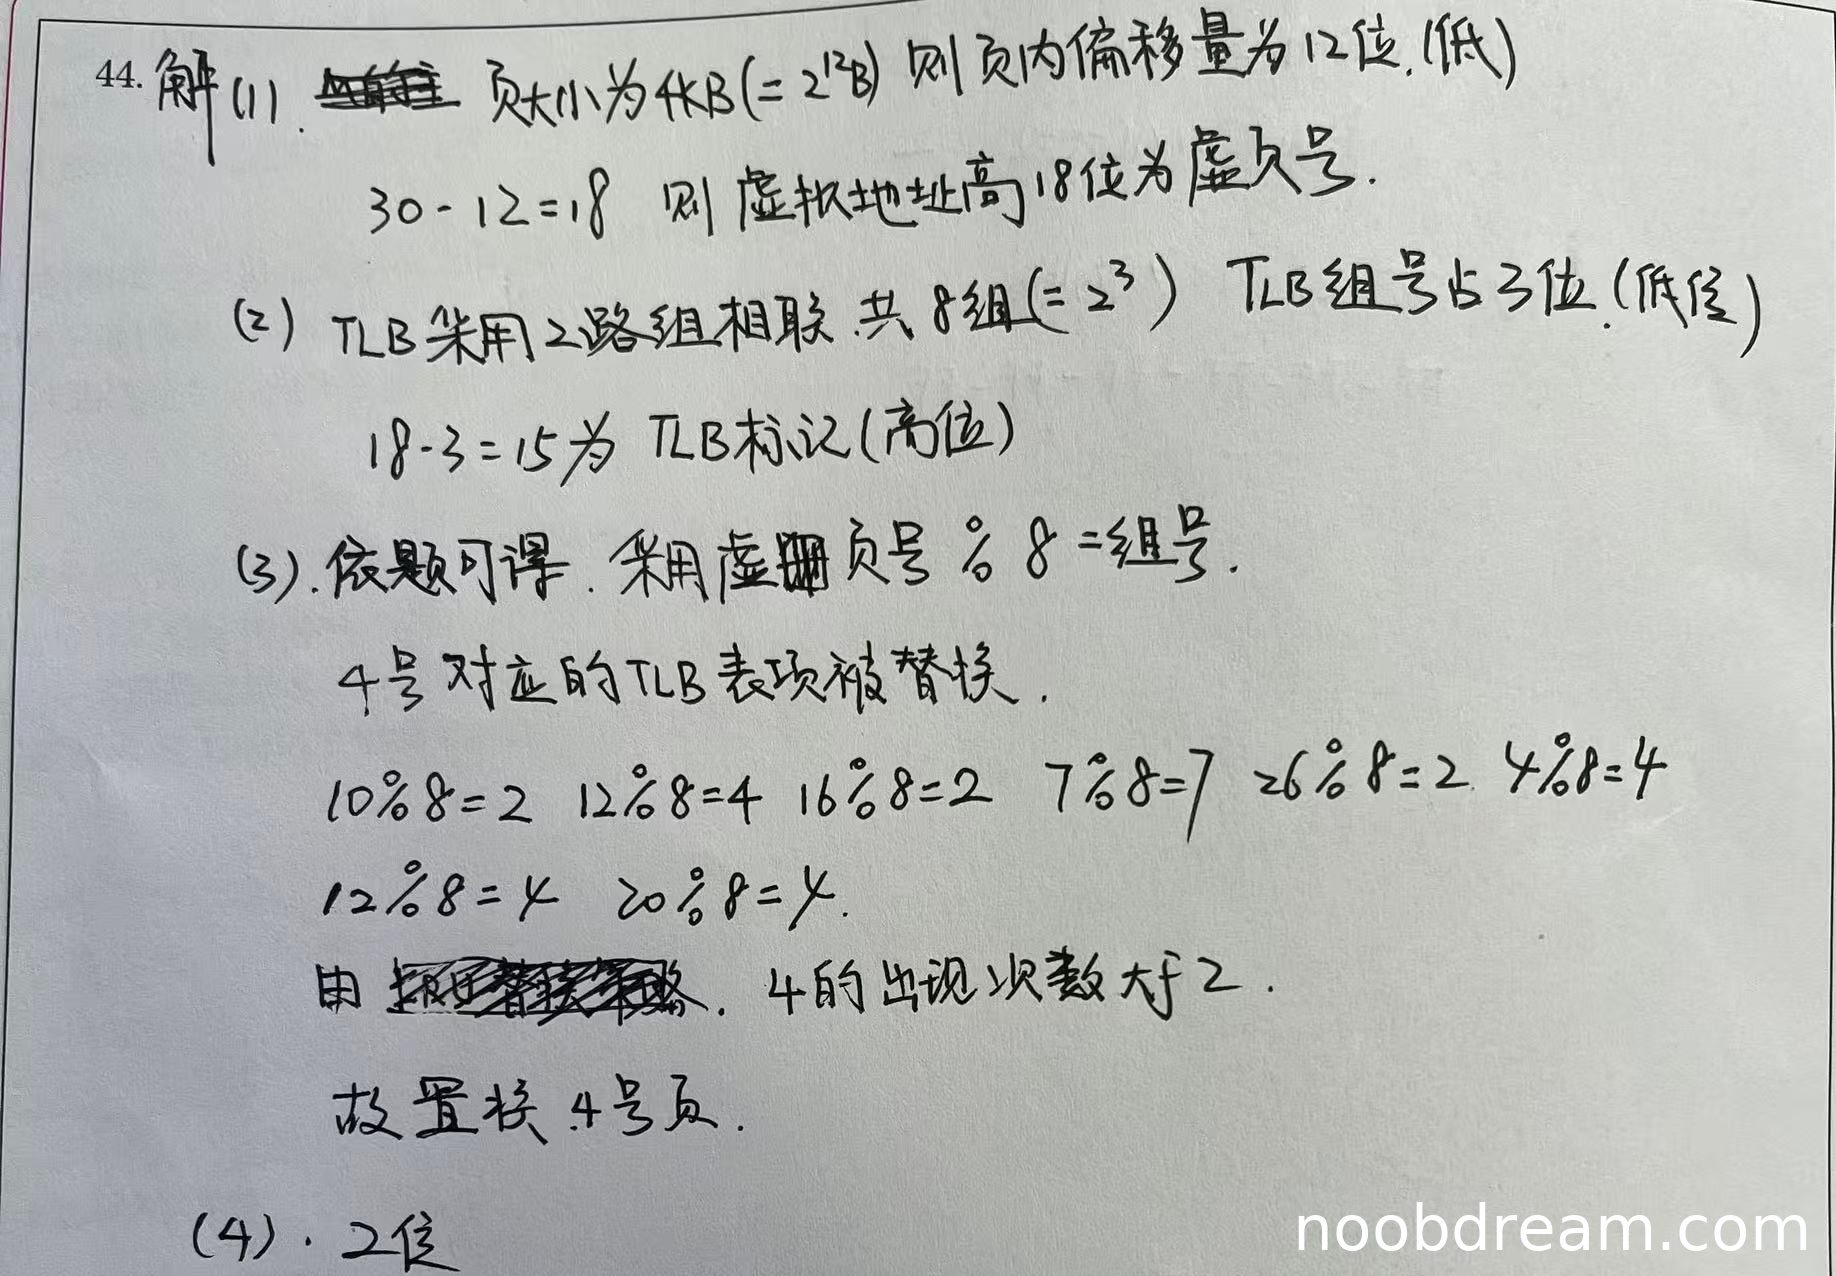 44. 解(1). 页大小为4KB(=2¹²B) 则页内偏移量为12位.(低)
30-12=18 则虚拟地址高18位为虚页号.
(2) TLB采用2路组相联.共8组(=2³) TLB组号占3位.(低位)
18-3=15为 TLB标记(高位)
(3).依题可得.采用虚页号 % 8 =组号.
4号对应的TLB表项被替换.
10%8=2 12%8=4 16%8=2 7%8=7 26%8=2. 4%8=4
12%8=4 20%8=4.
由 . 4的出现次数大于2.
故置换.4号页.
(4). 2位
noobdream.com